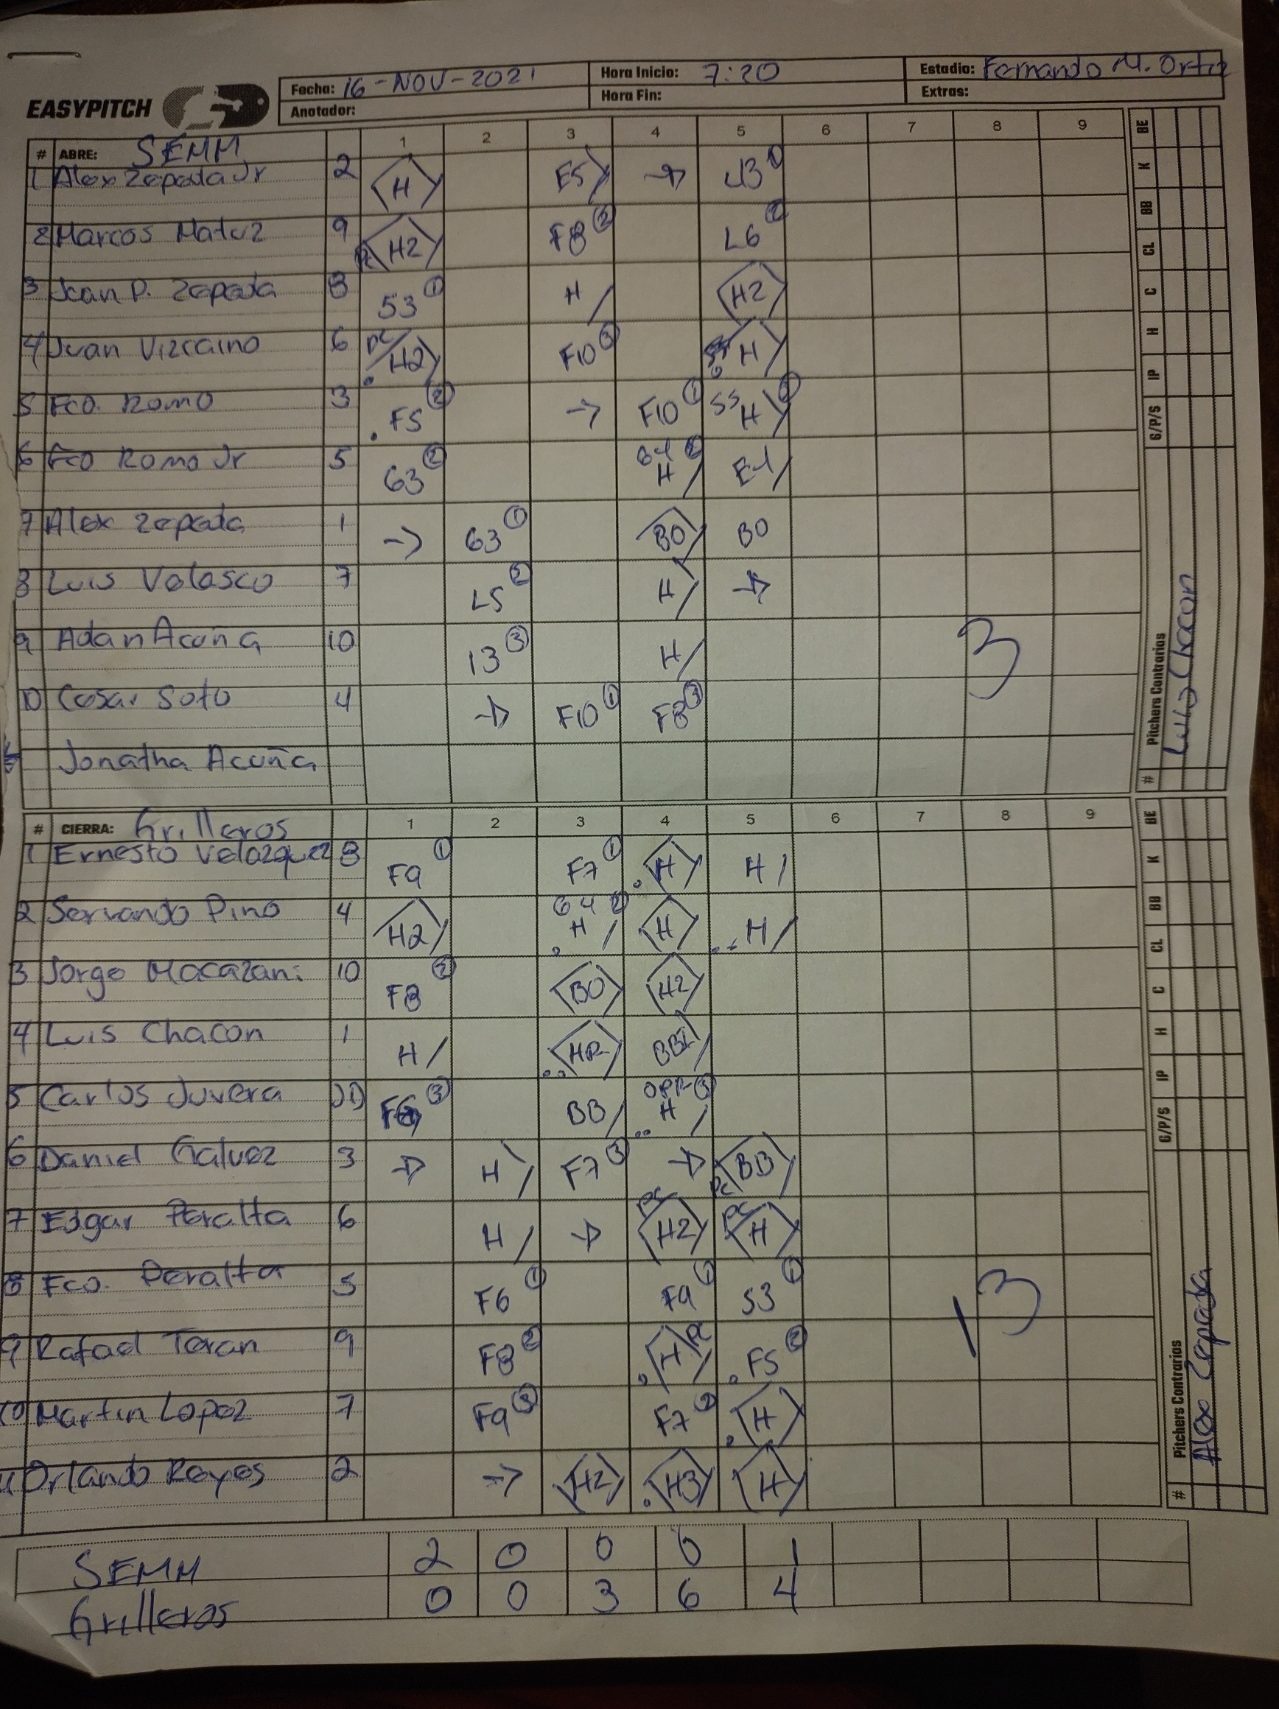 EASYPITCH
Fecha: 16-NOV-2021 Hora Inicio: 7:20 Estadio: Fernando M. Ortiz
Anotador: Hora Fin: Extras:
# ABRE: SEMM 1 2 3 4 5 6 7 8 9
1 Alex Zepada Jr 2 H E5 → 43 1
2 Marcos Matuz 9 H2 F8 2 L6 2
3 Jean P. Zepada 8 53 1 H H2
4 Juan Vizcaino 6 PC H2 F10 3 H
5 Fco. Romo 3 F5 2 → F10 1 55 H
6 Fco Romo Jr 5 63 64 2 H E1
7 Alex Zepada 1 → 63 1 BO BO
8 Luis Velasco 7 L5 2 H →
9 Adan Acuña 10 13 3 H 3
10 Cesar Soto 4 → F10 1 F8 3
Jonatha Acuña
BE K BB CL C H IP G/P/S
Pitchers Contrarios Luis Chacon
#
# CIERRA: Grilleros 1 2 3 4 5 6 7 8 9
1 Ernesto Velazquez 8 F9 1 F7 1 H H
2 Servando Pino 4 H2 64 2 H H H
3 Jorge Macazani 10 F8 2 BO H2
4 Luis Chacon 1 H HR BBI
5 Carlos Juvera 3 BB OPR 3 H
6 Daniel Galvez 3 → H F7 3 → BB PC
7 Edgar Peralta 6 H → PC H2 PC H
8 Fco. Peralta 5 F6 1 F9 1 53 1
9 Rafael Teran 9 F8 2 H PC F5 2 13
10 Martin Lopez 7 F9 3 F7 2 H
11 Orlando Reyes 2 → H2 H3 H
BE K BB CL C H IP G/P/S
Pitchers Contrarios Alex Zepada
#
SEMM 2 0 0 0 1
Grilleros 0 0 3 6 4